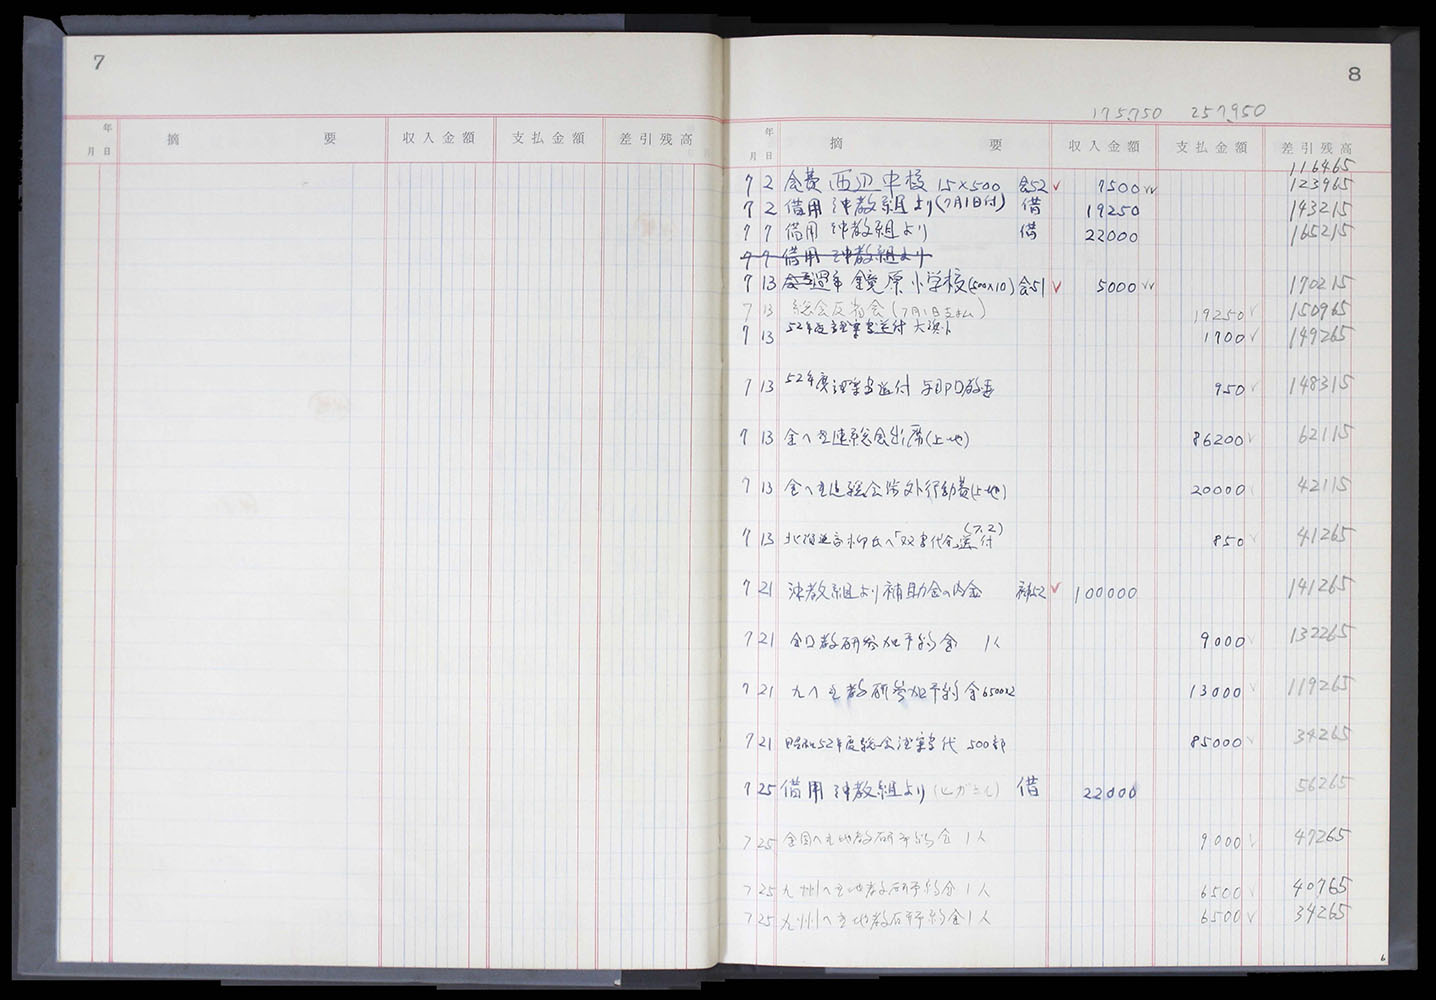 7
年
月 日 摘 要 収入金額 支払金額 差引残高
8
175,750 257,950
年
月 日 摘 要 収入金額 支払金額 差引残高
116465
7 2 会費 西辺中校 15×500 会52 ✓ 7500 123965
7 2 借用 沖教組より(7月1日付) 借 19250 143215
7 7 借用 沖教組より 借 22000 165215
7 7 借用 沖教組より
7 13 鏡原小学校(500×10) 会51 ✓ 5000 170215
7 13 総会反省会(7月1日支払) 19250 150965
7 13 52年度 送付 大浜 1700 149265
7 13 52年度 送付 950 148315
7 13 全へき連総会出席(上地) 86200 62115
7 13 全へき連総会 外行動費(上地) 20000 42115
(7.2)
7 13 北海道 氏へ 代金送付 850 41265
7 21 沖教組より補助金の内金 補52 ✓ 100000 141265
7 21 教研参加予約金 1人 9000 132265
7 21 九へき教研参加予約金 6500×2 13000 119265
7 21 昭和52年度総会議案書代 500部 85000 34265
7 25 借用 沖教組より 借 22000 56265
7 25 全国へき地教研予約金 1人 9000 47265
7 25 九州へき地教研予約金 1人 6500 40765
7 25 九州へき地教研予約金 1人 6500 34265
6